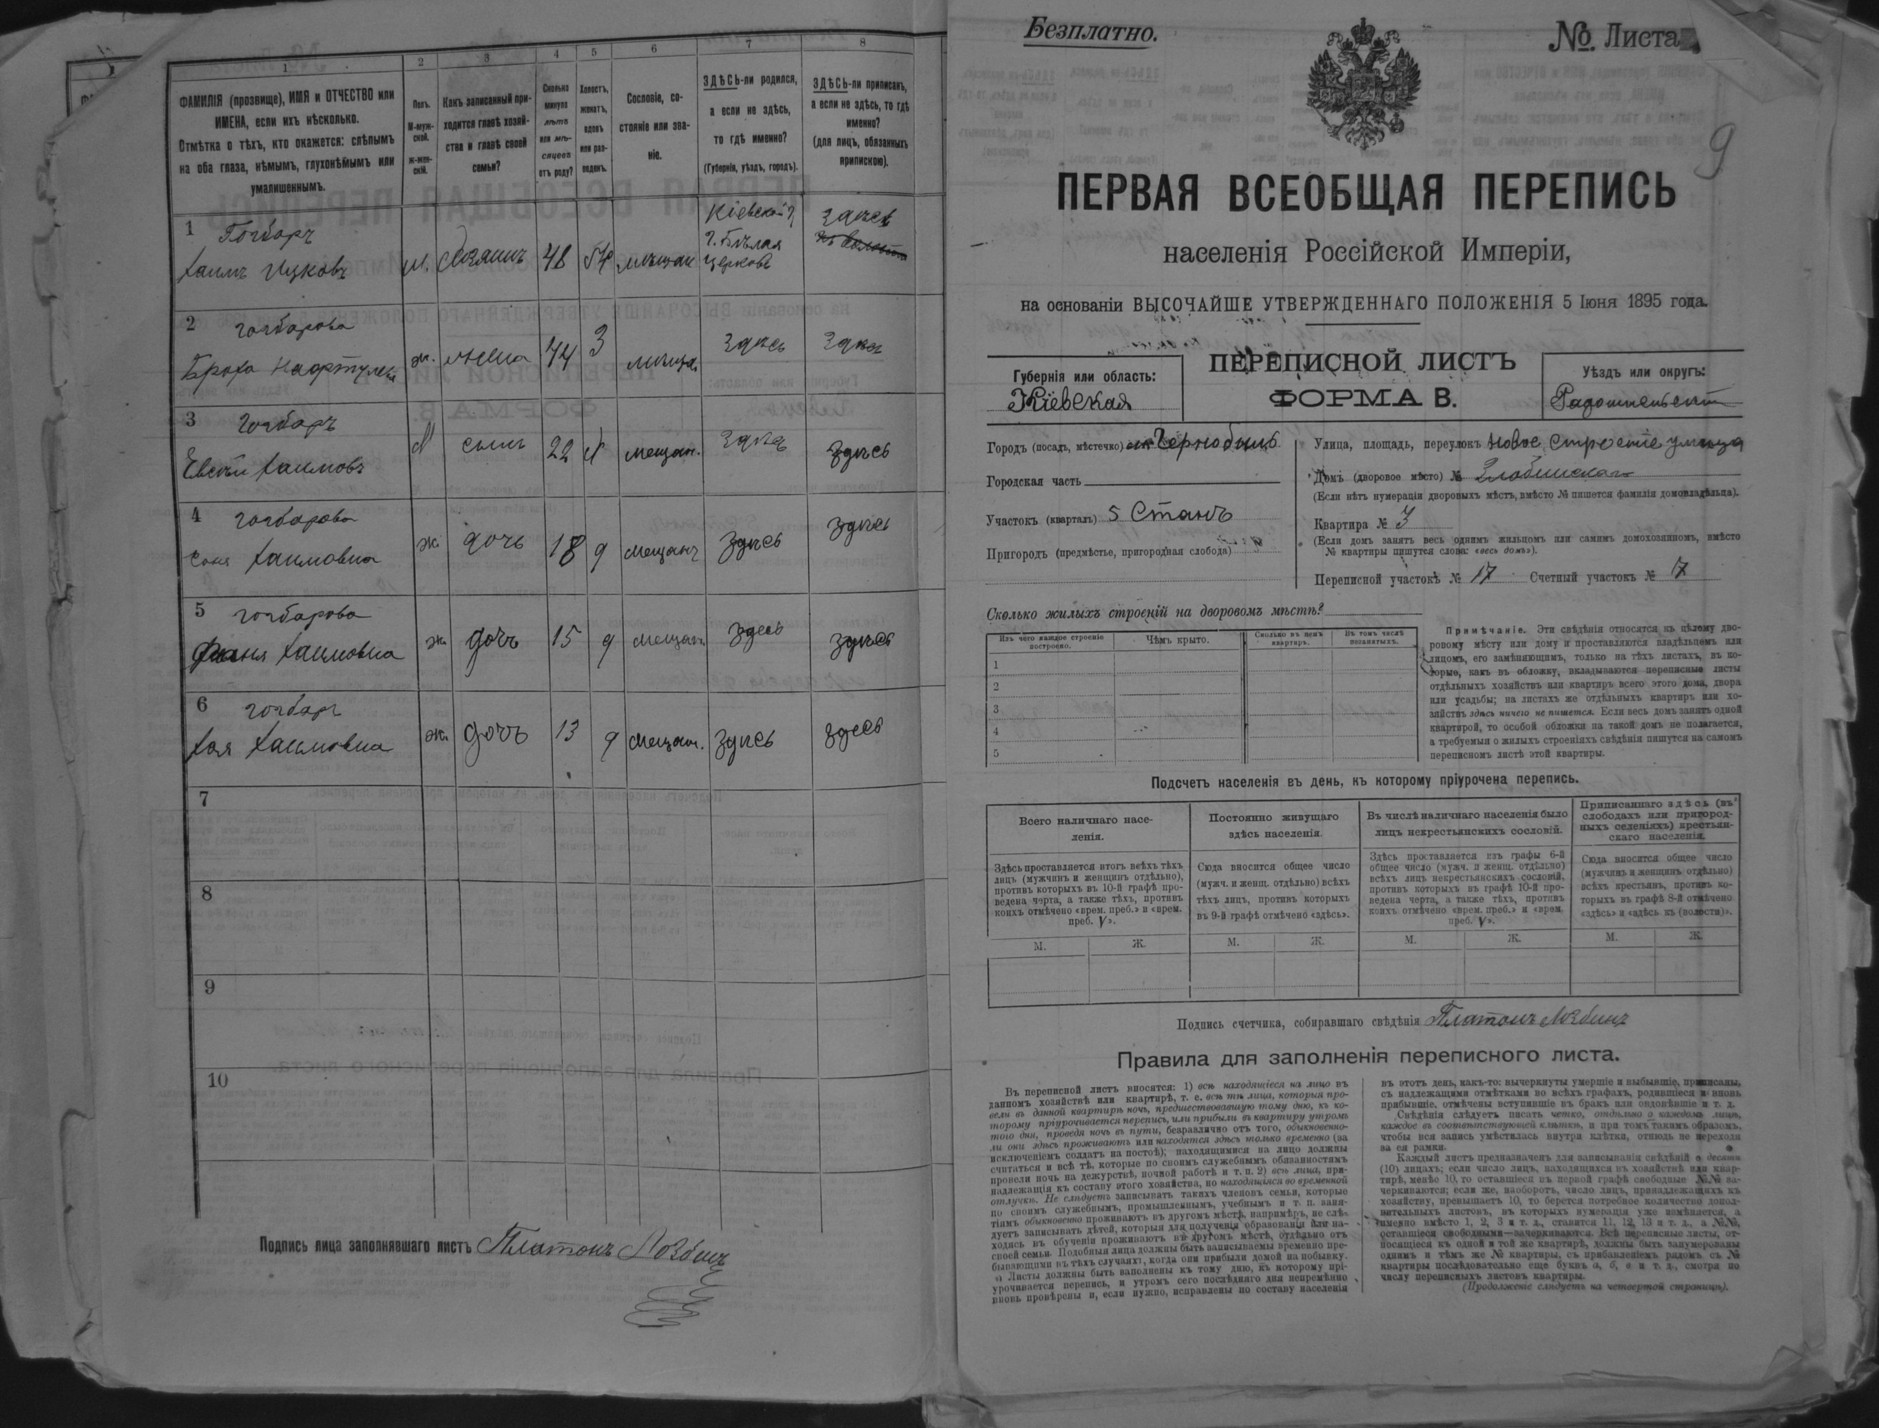 1
2
3
4
5
6
7
8
ФАМИЛІЯ (прозвище), ИМЯ и ОТЧЕСТВО или
ИМЕНА, если ихъ нѣсколько.
Отмѣтка о тѣхъ, кто окажется: слѣпымъ
на оба глаза, нѣмымъ, глухонѣмымъ или
умалишеннымъ.
Полъ.
М-муж-
ской.
Ж-жен-
скій.
Какъ записанный при-
ходится главѣ хозяй-
ства и главѣ своей
семьи?
Сколько
минуло
лѣтъ
или мѣ-
сяцевъ
отъ роду?
Холостъ,
женатъ,
вдовъ
или раз-
веденъ.
Сословіе, со-
стояніе или зва-
ніе.
ЗДѢСЬ-ли родился,
а если не здѣсь,
то гдѣ именно?
(Губернія, уѣздъ, городъ).
ЗДѢСЬ-ли приписанъ,
а если не здѣсь, то гдѣ
именно?
(для лицъ, обязанныхъ
припискою).
1
Хаимъ Ицковъ
м.
48
Кіевской г.
г. Бѣлая
Церковь
здѣсь
2
ж.
жена
44
3
здѣсь
здѣсь
3
Хаимовъ
сынъ
22
мещан.
здѣсь
здѣсь
4
Соня Хаимовна
ж.
дочь
18
д
мещанъ
здѣсь
здѣсь
5
Фаня Хаимовна
ж.
дочъ
15
д
мещан.
здесь
здѣсь
6
Хая Хаимовна
ж.
дочъ
13
д
мещан.
здѣсь
здесь
7
8
9
10
Подпись лица заполнявшаго листъ Платонъ
Безплатно.
№ Листа
9
ПЕРВАЯ ВСЕОБЩАЯ ПЕРЕПИСЬ
населенія Россійской Имперіи,
на основаніи ВЫСОЧАЙШЕ УТВЕРЖДЕННАГО ПОЛОЖЕНІЯ 5 Іюня 1895 года.
ПЕРЕПИСНОЙ ЛИСТЪ
ФОРМА В.
Губернія или область:
Кіевская
Уѣздъ или округъ:
Городъ (посадъ, мѣстечко) Чернобыль
Городская часть
Участокъ (кварталъ) 5 Станъ
Пригородъ (предмѣстье, пригородная слобода)
Улица, площадь, переулокъ Новое строеніе улица
Домъ (дворовое мѣсто) №
(Если нѣтъ нумераціи дворовыхъ мѣстъ, вмѣсто № пишется фамилія домовладѣльца).
Квартира № 3
(Если домъ занятъ весь однимъ жильцомъ или самимъ домохозяиномъ, вмѣсто
№ квартиры пишутся слова: «весь домъ»).
Переписной участокъ № 17 Счетный участокъ № 17
Сколько жилыхъ строеній на дворовомъ мѣстѣ?
Изъ чего каждое строеніе
построено.
Чѣмъ крыто.
Сколько въ немъ
квартиръ.
Въ томъ числѣ
незанятыхъ.
1
2
3
4
5
Примѣчаніе. Эти свѣдѣнія относятся къ цѣлому дво-
ровому мѣсту или дому и проставляются владѣльцемъ или
лицомъ, его замѣняющимъ, только на тѣхъ листахъ, въ ко-
торые, какъ въ обложку, вкладываются переписные листы
отдѣльныхъ хозяйствъ или квартиръ всего этого дома, двора
или усадьбы; на листахъ же отдѣльныхъ квартиръ или хо-
зяйствъ здѣсь ничего не пишется. Если весь домъ занятъ одной
квартирой, то особой обложки на такой домъ не полагается,
а требуемыя о жилыхъ строеніяхъ свѣдѣнія пишутся на самомъ
переписномъ листѣ этой квартиры.
Подсчетъ населенія въ день, къ которому пріурочена перепись.
Всего наличнаго насе-
ленія.
Постоянно живущаго
здѣсь населенія.
Въ числѣ наличнаго населенія было
лицъ некрестьянскихъ сословій.
Приписаннаго здѣсь (въ
слободахъ или пригород-
ныхъ селеніяхъ) крестьян-
скаго населенія.
Здѣсь проставляется итогъ всѣхъ тѣхъ
лицъ (мужчинъ и женщинъ отдѣльно),
противъ которыхъ въ 10-й графѣ про-
ведена черта, а также тѣхъ, противъ
коихъ отмѣчено «врем. преб.» и «врем.
преб. V».
Сюда вносится общее число
(мужч. и женщ. отдѣльно) всѣхъ
тѣхъ лицъ, противъ которыхъ
въ 9-й графѣ отмѣчено «здѣсь».
Здѣсь проставляется изъ графы 6-й
общее число (мужч. и женщ. отдѣльно)
всѣхъ лицъ некрестьянскихъ сословій,
противъ которыхъ въ графѣ 10-й про-
ведена черта, а также тѣхъ, противъ
коихъ отмѣчено «врем. преб.» и «врем.
преб. V».
Сюда вносится общее число
(мужчинъ и женщинъ отдѣльно)
всѣхъ крестьянъ, противъ ко-
торыхъ въ графѣ 8-й отмѣчено
«здѣсь» и «здѣсь къ (волости)».
М. Ж. М. Ж. М. Ж. М. Ж.
Подпись счетчика, собиравшаго свѣдѣнія Платонъ
Правила для заполненія переписного листа.
Въ переписной листъ вносятся: 1) всѣ находящіеся на лицо въ
данномъ хозяйствѣ или квартирѣ, т. е. всѣ тѣ лица, которыя про-
вели въ данной квартирѣ ночь, предшествовавшую тому дню, къ ко-
торому пріурочивается перепись, или прибыли въ квартиру утромъ
того дня, проведя ночь въ пути, безразлично отъ того, обыкновенно-
ли они здѣсь проживаютъ или находятся здѣсь только временно (за
исключеніемъ солдатъ на постоѣ); находящимися на лицо должны
считаться и всѣ тѣ, которые по своимъ служебнымъ обязанностямъ
провели ночь на дежурствѣ, ночной работѣ и т. п. 2) всѣ лица, при-
надлежащія къ составу этого хозяйства, но находящіяся во временной
отлучкѣ. Не слѣдуетъ записывать такихъ членовъ семьи, которые
по своимъ служебнымъ, промышленнымъ, учебнымъ и т. п. заня-
тіямъ обыкновенно проживаютъ въ другомъ мѣстѣ, напримѣръ, не слѣ-
дуетъ записывать дѣтей, которыя для полученія образованія или на-
ходясь въ обученіи проживаютъ въ другомъ мѣстѣ, отдѣльно отъ
своей семьи. Подобныя лица должны быть записываемы временно пре-
бывающими въ тѣхъ случаяхъ, когда они прибыли домой на побывку.
Листы должны быть заполнены къ тому дню, къ которому прі-
урочивается перепись, и утромъ сего послѣдняго дня непремѣнно
вновь провѣрены и, если нужно, исправлены по составу населенія
въ этотъ день, какъ-то: вычеркнуты умершіе и выбывшіе, приписаны,
съ надлежащими отмѣтками во всѣхъ графахъ, родившіеся и вновь
прибывшіе, отмѣчены вступившіе въ бракъ или овдовѣвшіе и т. д.
Свѣдѣнія слѣдуетъ писать четко, отдѣльно о каждомъ лицѣ,
каждое въ соотвѣтствующей клѣткѣ, и при томъ такимъ образомъ,
чтобы вся запись умѣстилась внутри клѣтки, отнюдь не переходя
за ея рамки.
Каждый листъ предназначенъ для записыванія свѣдѣній о десяти
(10) лицахъ; если число лицъ, находящихся въ хозяйствѣ или квар-
тирѣ, менѣе 10, то оставшіеся въ первой графѣ свободные №№ за-
черкиваются; если же, наоборотъ, число лицъ, принадлежащихъ къ
хозяйству, превышаетъ 10, то берется потребное количество допол-
нительныхъ листовъ, въ которыхъ нумерація уже измѣняется, а
именно вмѣсто 1, 2, 3 и т. д., ставятся 11, 12, 13 и т. д., а №№,
оставшіеся свободными—зачеркиваются. Всѣ переписные листы, от-
носящіеся къ одной и той же квартирѣ, должны быть занумерованы
однимъ и тѣмъ же № квартиры, съ прибавленіемъ рядомъ съ №
квартиры послѣдовательно еще буквъ а, б, в и т. д., смотря по
числу переписныхъ листовъ квартиры.
(Продолженіе слѣдуетъ на четвертой страницѣ).